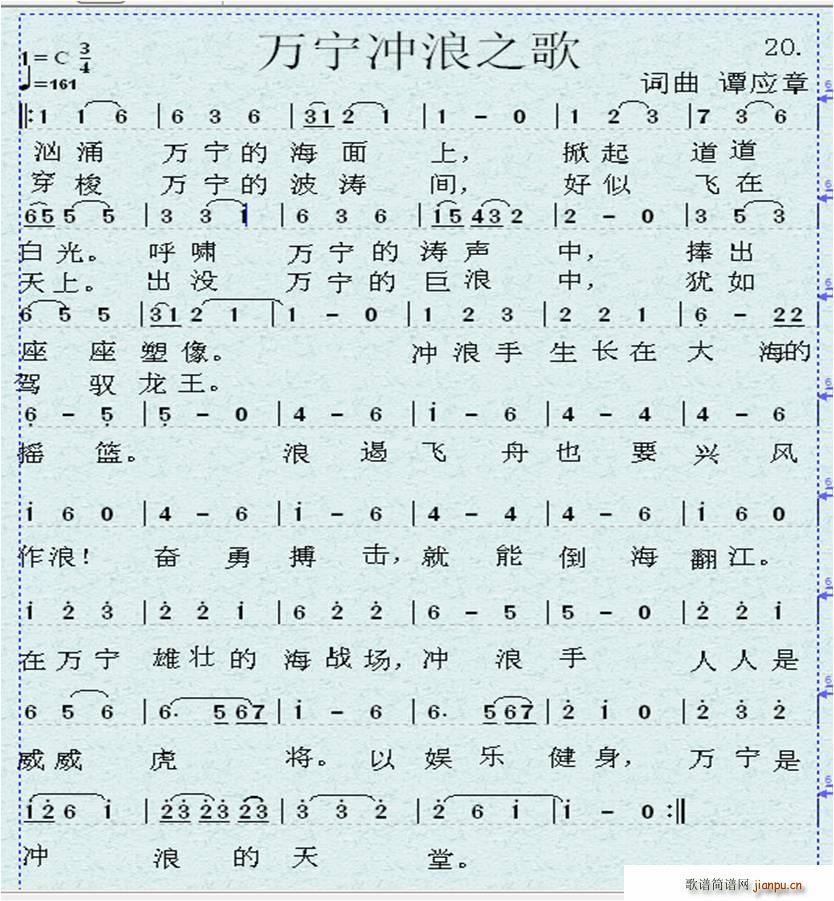 万宁冲浪之歌
20.
1=C 3/4
♩=161
词曲 谭应章
‖:1 1 6 |6 3 6 |31 2 1 |1 - 0 |1 2 3 |7 3 6
汹涌 万宁的海面 上， 掀起 道道
穿梭 万宁的波涛 间， 好似 飞在
65 5 5 |3 3 1 |6 3 6 |15 43 2 |2 - 0 |3 5 3
白光。 呼啸 万宁的涛声 中， 捧出
天上。 出没 万宁的巨浪 中， 犹如
6 5 5 |31 2 1 |1 - 0 |1 2 3 |2 2 1 |6̣ - 22
座 座塑像。 冲浪手生长在大 海的
驾 驭龙王。
6̣ - 5̣ |5̣ - 0 |4 - 6 |i - 6 |4 - 4 |4 - 6
摇 篮。 浪 遏飞 舟也 要兴 风
i 6 0 |4 - 6 |i - 6 |4 - 4 |4 - 6 |i 6 0
作浪！ 奋 勇搏 击，就 能倒 海翻江。
i 2̇ 3̇ |2̇ 2̇ i |6 2̇ 2̇ |6 - 5 |5 - 0 |2̇ 2̇ i
在万宁 雄壮的海战场，冲 浪手 人人是
6 5 6 |6. 5 67 |i - 6 |6. 5 67 |2̇ i 0 |2̇ 3̇ 2̇
威威 虎 将。以娱 乐健身， 万宁是
i2̇ 6 i |2̇3̇ 2̇3̇ 2̇3̇ |3̇ 3̇ 2̇ |2̇ 6 i |i - 0 :‖
冲 浪 的天 堂。
歌谱简谱网 jianpu.cn